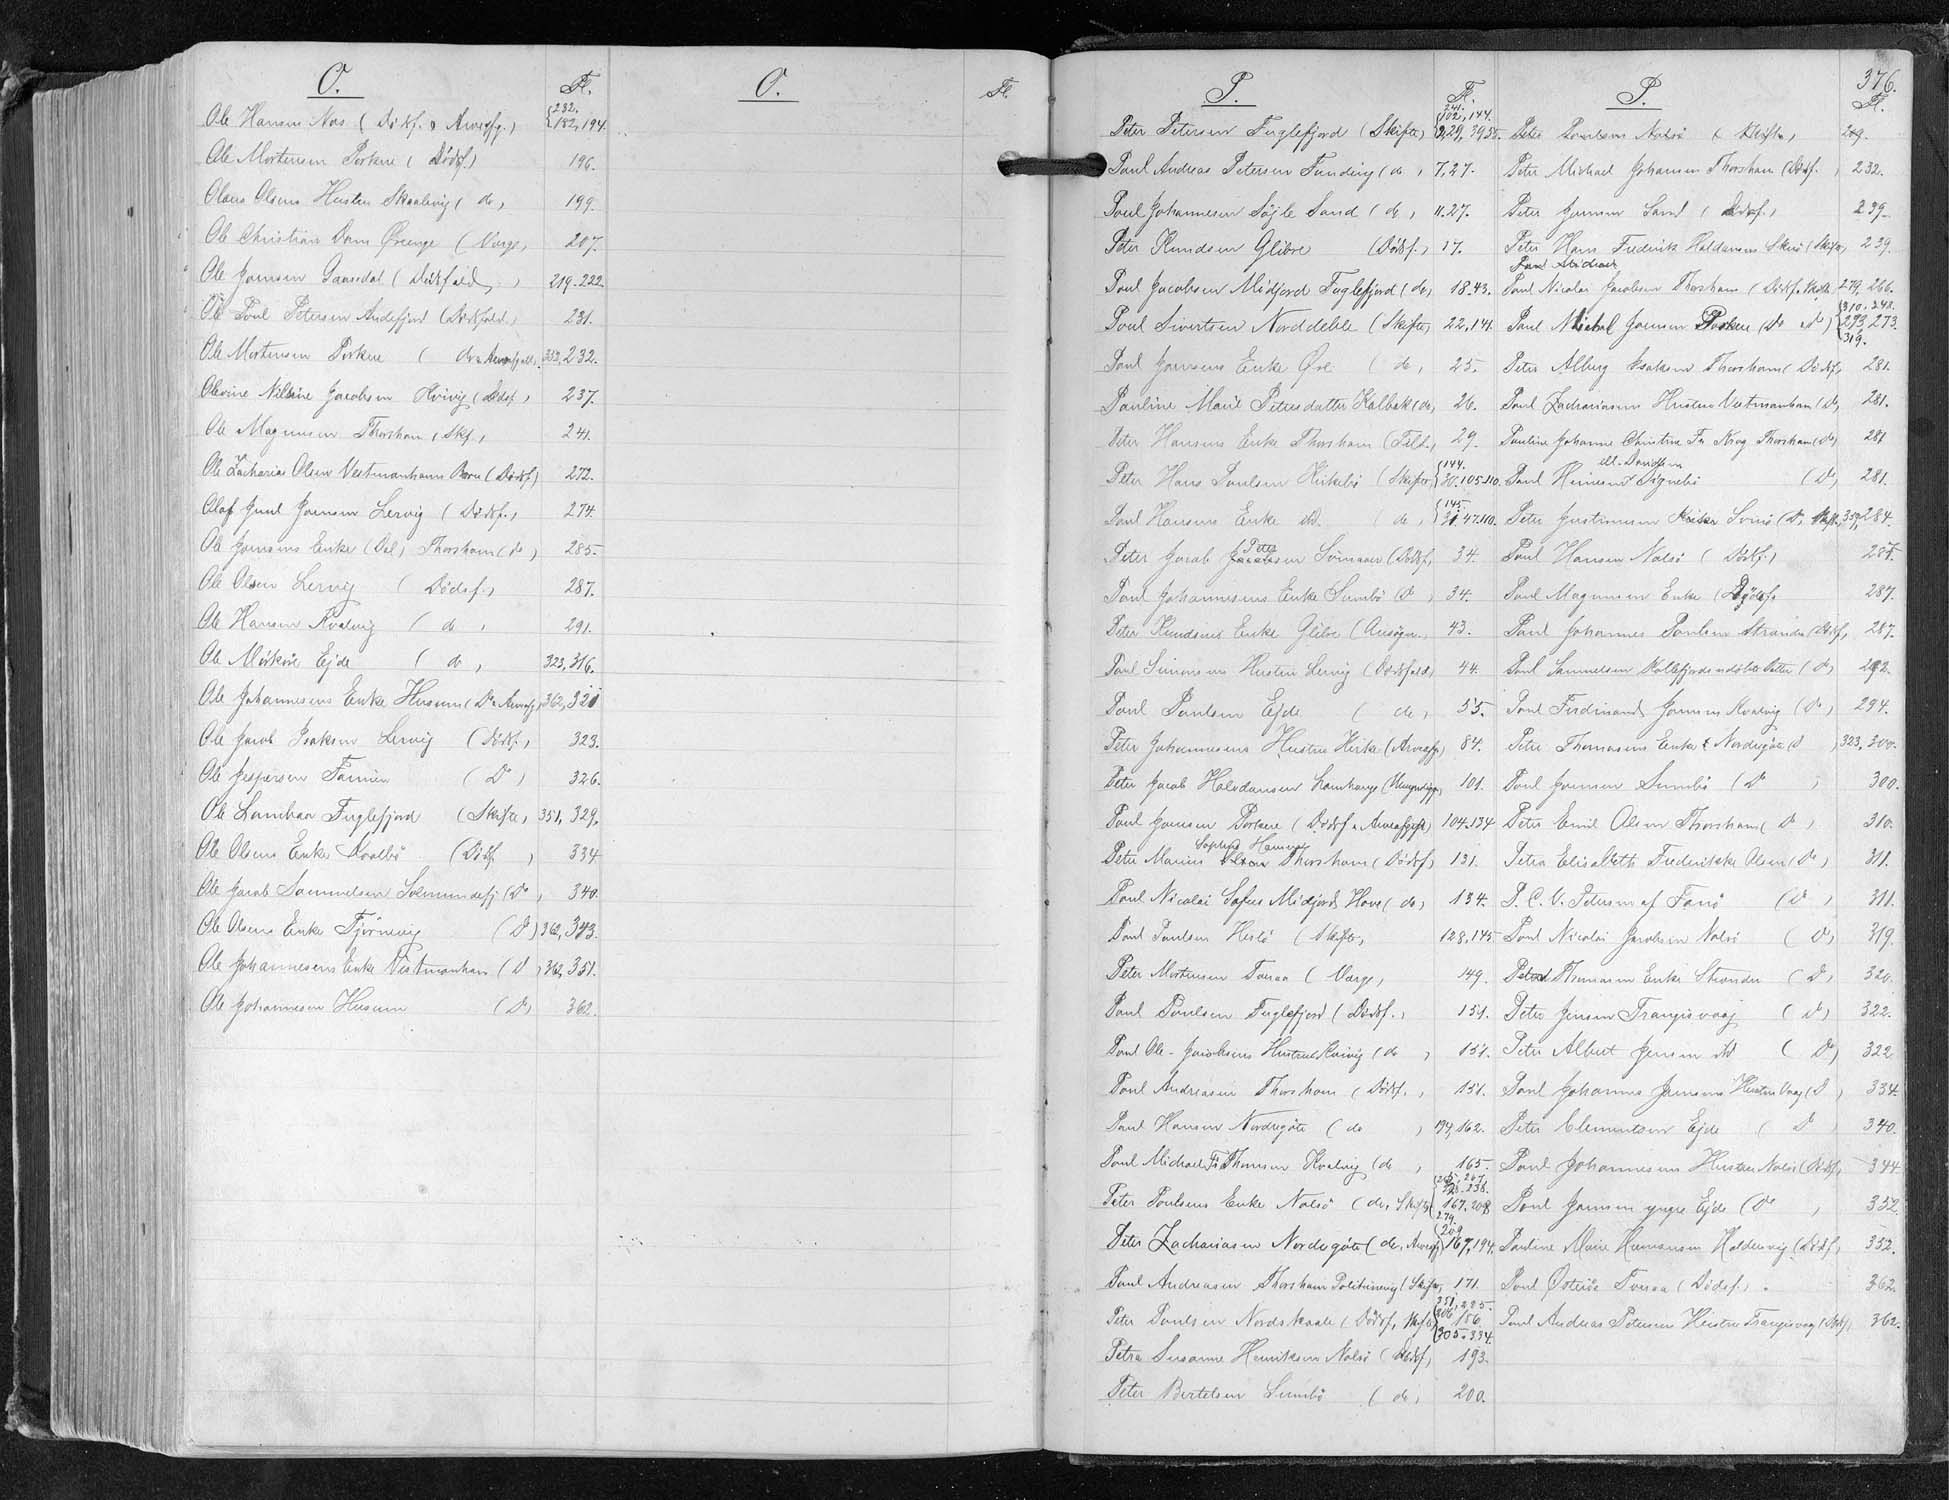 O. Fl.
Ole Hansen Næs (Dødsf. & Arveafg.) {232. 182, 194.
Ole Mortensen Porkere (Dødsf.) 196.
Olaus Olsens Hustru Skaalevig (do) 199.
Ole Christian Dam Øreinge (Værge) 207.
Ole Joensen Gaasedal (Dødsfald) 219-222.
Ole Poul Petersen Andefjord (Dødsfald) 231.
Ole Mortensen Porkere (do & Arveafgift) 353, 232.
Olevine Nilsine Jacobsen Hvivig (Dødsf.) 237.
Ole Magnussen Thorshavn (Skf.) 241.
Ole Zacharias Olsen Vestmanhavn Børn (Dødsf.) 272.
Olaf Juul Joensen Lervig (Dødsf.) 274.
Ole Joensens Enke (Dal) Thorshavn (do) 285.
Ole Olsen Lervig (Dødsf.) 287.
Ole Hansen Kvalvig (do) 291.
Ole Mørkøre Ejde (do) 323, 316.
Ole Johannesens Enke Husum (Do & Arveafg.) 362, 320
Ole Jacob Isaksen Lervig (Dødsf.) 323.
Ole Jespersen Famien (Do) 326.
Ole Lambaa Fuglefjord (Skifte) 351, 329.
Ole Olsens Enke Kvalbø (Dødsf.) 334
Ole Jacob Samuelsen Selmundefj (Do) 340.
Ole Olsens Enke Tjørnevig (Do) 362, 343.
Ole Johannesens Enke Vestmanhavn (Do) 362, 351.
Ole Johannesen Husum (Do) 362.
O. Fl.
P. Fl.
Peter Petersen Fuglefjord (Skifte) {241. 102, 144. 2, 29, 39, 55.
Poul Andreas Petersen Funding (do) 7, 27.
Poul Johannesen Søjle Sand (do) 11. 27.
Peter Knudsen Glibre (Dødsf.) 17.
Poul Jacobsen Midjord Fuglefjord (do) 18. 43.
Poul Sivertsen Norddeble (Skifte) 22, 141.
Poul Joensens Enke Øre (do) 25.
Pauline Marie Petersdatter Kalbak (do) 26.
Peter Hansens Enke Thorshavn (Till.) 29.
Peter Hans Poulsen Kirkebø (Skifte) {144. 30. 105. 110.
Poul Hansens Enke ibd. (do) {145. 31. 47. 110.
Peter Jacob Peter Jacobsen Svinaaer (Dødsf.) 34.
Poul Johannesens Enke Sumbø (Do) 34.
Peter Knudsens Enke Glibre (Ansøgn.) 43.
Poul Simonsens Hustru Lervig (Dødsfald) 44.
Poul Poulsen Ejde (do) 55.
Peter Johannesens Hustru Kirke (Arveafg.) 84.
Peter Jacob Halvdansen Lamhauge 101.
Poul Joensen Porkere (Dødsf & Arveafgift) 104. 134
Peter Marius Sophus Hansen Olsen Thorshavn (Dødsf.) 131.
Poul Nicolai Sofus Midjord Hove (do) 134.
Poul Poulsen Hestø (Skifte) 128, 145
Peter Mortensen Tveraa (Værge) 149.
Poul Poulsen Fuglefjord (Dødsf.) 151.
Poul Ole-Jacobsens Hustru Hvivig (do) 151.
Poul Andreasen Thorshavn (Dødsf.) 151.
Poul Hansen Nordregøte (do) 194, 162.
Poul Michael Fr Thomsen Kvalvig (do) 165.
Peter Poulsens Enke Nolsø (do, Skifte) 238. 167. 208 279.
Peter Zachariasen Nordregøte (do, Arveafg) {209 167, 194.
Poul Andreasen Thorshavn (Skifte) 171.
Peter Poulsen Nordskaale (Dødsf, Skifte) {351, 225. 206, 186. 305. 334.
Petra Susanne Henriksen Nolsø (Dødsf) 193.
Peter Bertelsen Sumbø (do) 200.
P. 376. Fl.
Peter Poulsen Nolsø (Skifte) 209.
Peter Michael Johansen Thorshavn (Dødsf.) 232.
Peter Joensen Sand (Dødsf.) 239.
Peter Hans Frederik Haldansen Skuø (Skifte) 239.
Poul Michael
Poul Nicolai Jacobsen Thorshavn (Dødsf. Skifte) 279. 266.
Poul Michal Joensen Porkere (Do Do) {310. 248. 293, 273. 319.
Peter Alberg Isaksen Thorshavn (Dødsf.) 281.
Poul Zachariasens Hustru Vestmanhavn (Do) 281.
Pauline Johanne Christine Fr Krog Thorshavn (Do) 281
Poul Heinesen ell. Davidsen Signebø (Do) 281.
Peter Justinussen Svinø (Do, Skift.) 359, 284.
Poul Hansen Nolsø (Dødsf.) 287.
Poul Magnussen Enke (Dødsf.) 287.
Poul Johannes Poulsen Strender (Dødsf.) 287.
Poul Samuelsen Kollefjords udøbte Datter (Do) 292.
Poul Ferdinand Joensen Kvalvig (Do) 294.
Peter Thomasens Enke Nordregøte (Do) 323, 300.
Poul Joensen Sumbø (Do) 300.
Peter Emil Olsen Thorshavn (Do) 310.
Petra Elisabeth Frederikke Olsen (Do) 311.
P. C. V. Petersen af Fanø (Do) 311.
Poul Nicolai Jacobsen Nolsø (Do) 319.
Poul Thomasen Enke Strender (Do) 320.
Peter Jensen Trangisvaag (Do) 322.
Peter Albert Jensen ibd (Do) 322
Poul Johannes Joensens Hustru Vaag (Do) 334.
Peter Clementsen Ejde (Do) 340.
Poul Johannesens Hustru Nolsø (Dødsf.) 344
Poul Joensen yngre Ejde (Do) 352
Pauline Marie Hansen Haldersvig (Dødsf.) 352.
Poul Østerø Tveraa (Dødsf.) 362.
Poul Andreas Petersens Hustru Trangisvaag (Dødsf.) 362.